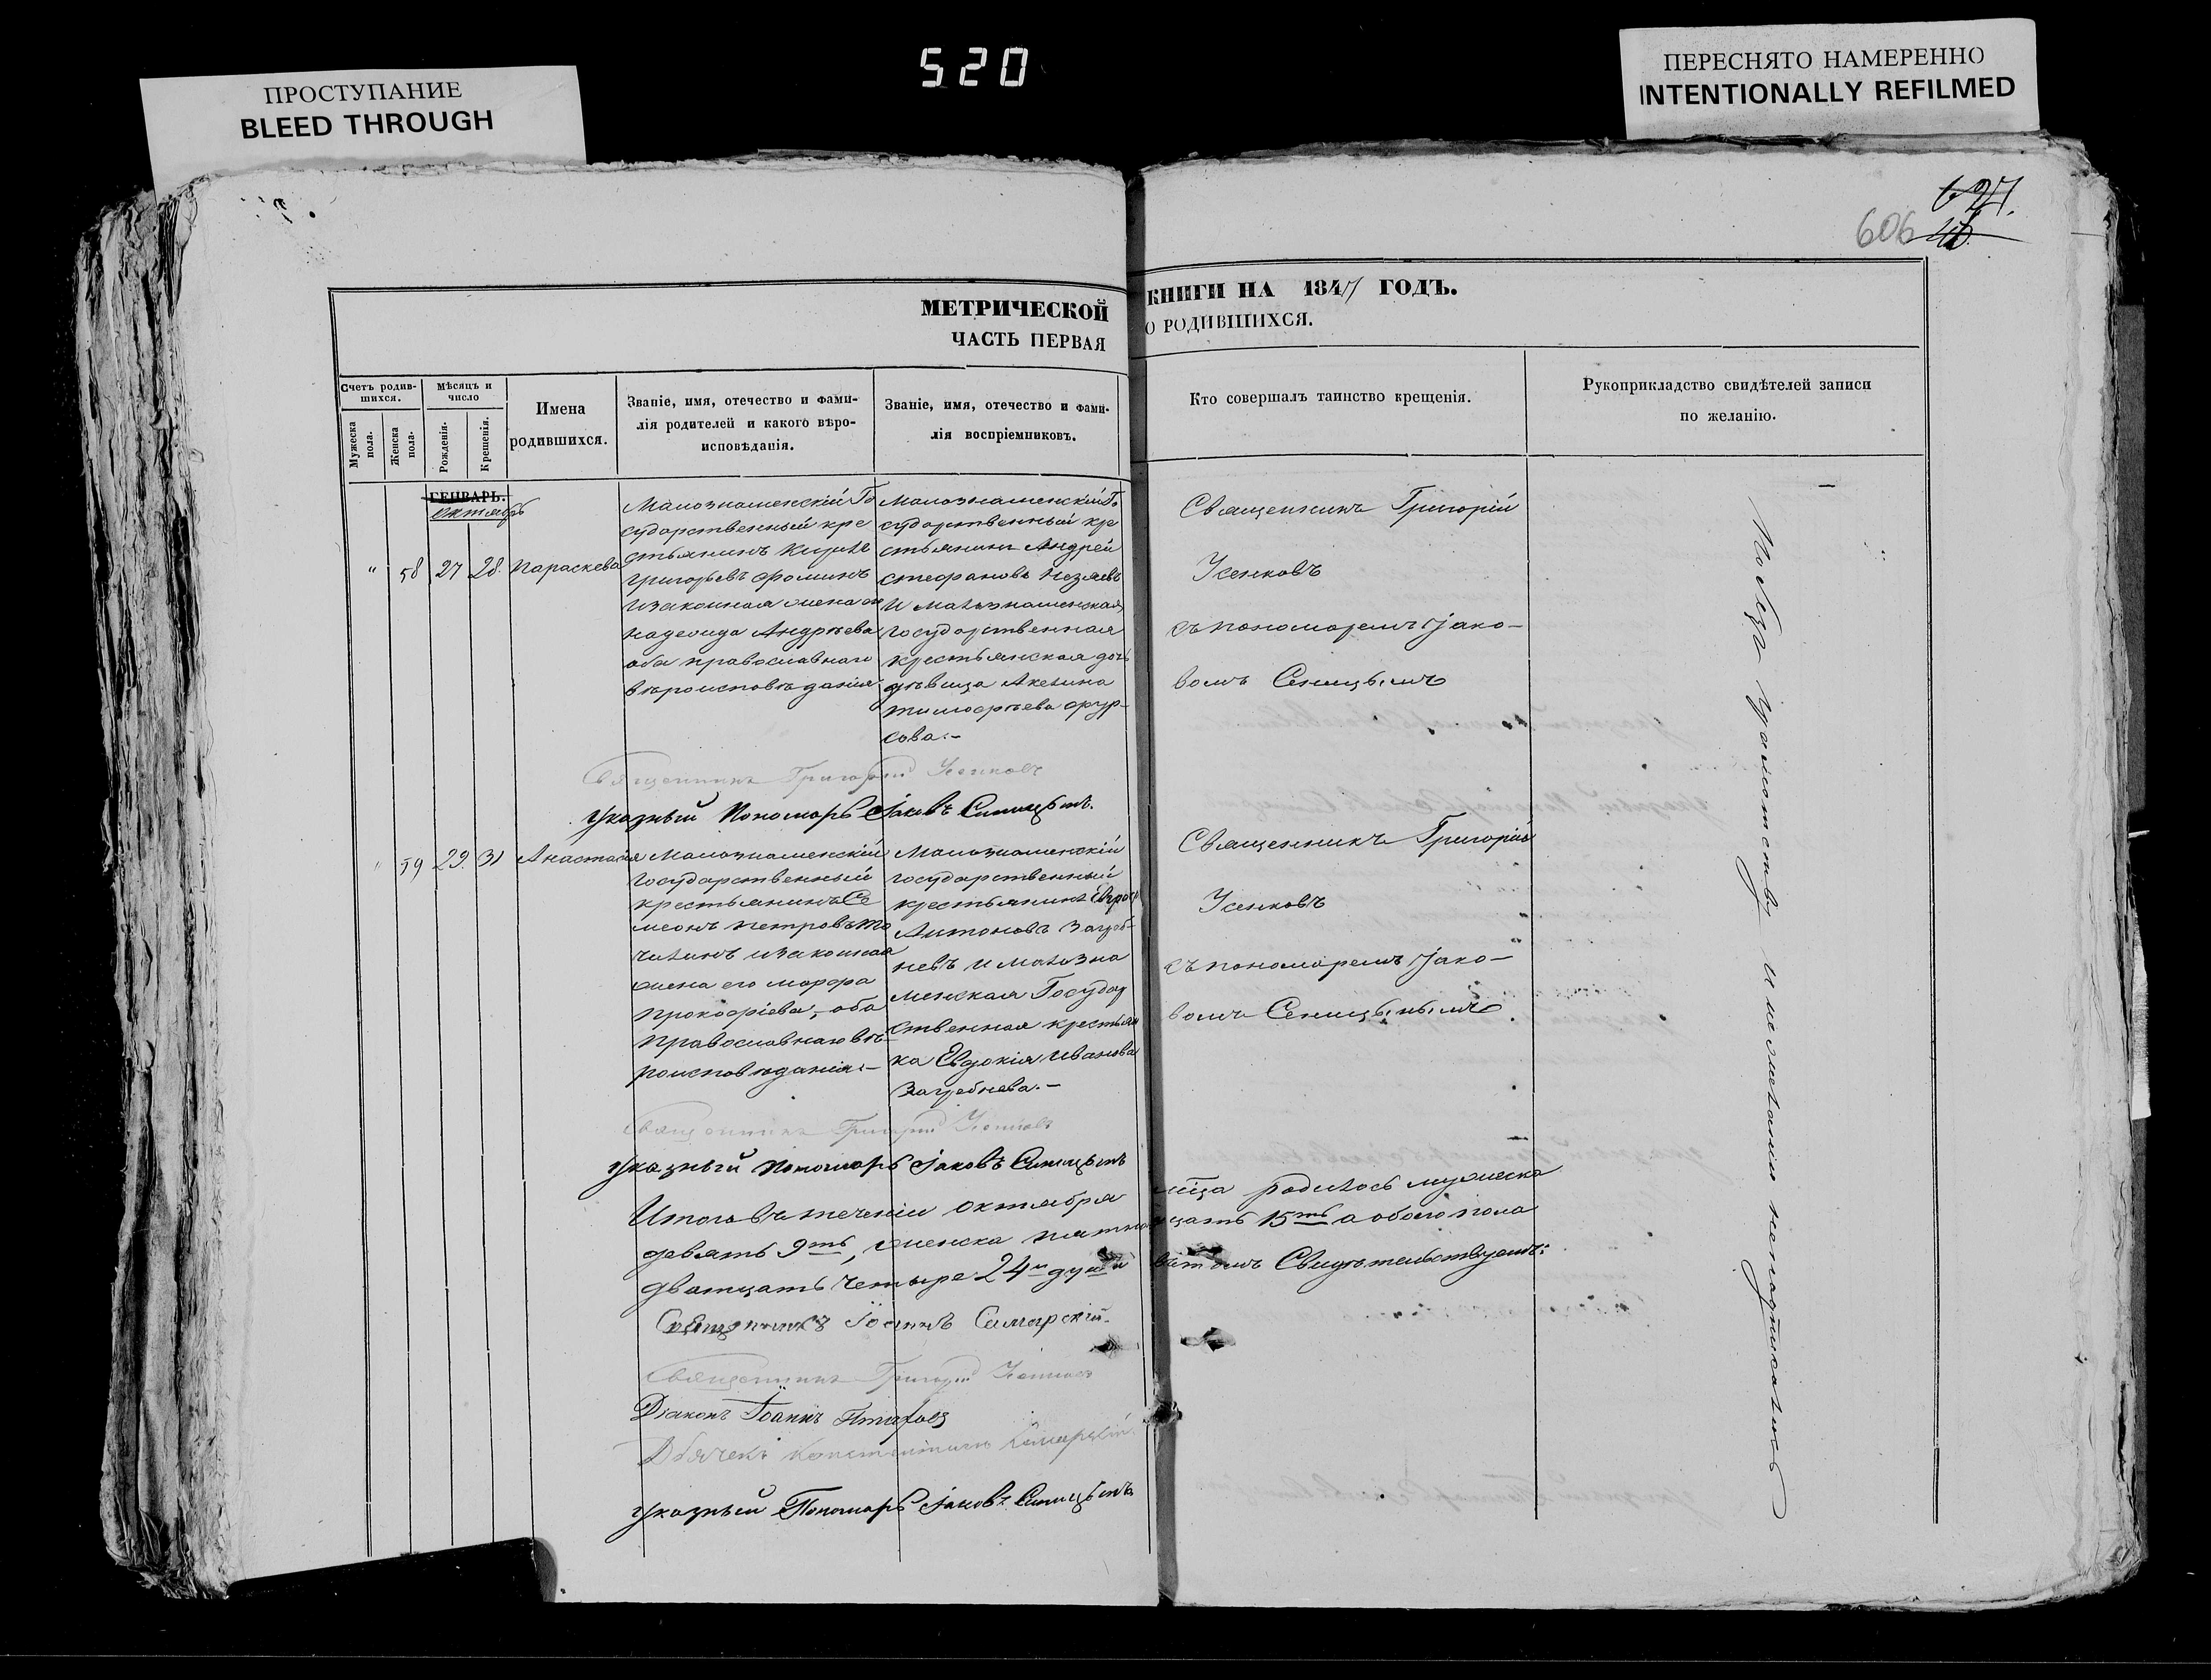 520
ПРОСТУПАНИЕ
BLEED THROUGH
ПЕРЕСНЯТО НАМЕРЕННО
INTENTIONALLY REFILMED
627.
606
МЕТРИЧЕСКОЙ КНИГИ НА 1847 ГОДЪ.
ЧАСТЬ ПЕРВАЯ О РОДИВШИХСЯ.
Счетъ родив-
шихся.
Мужеска пола.
Женска пола.
Мѣсяцъ и
число
Рожденія.
Крещенія.
Имена
родившихся.
Званіе, имя, отечество и фами-
лія родителей и какого вѣро-
исповѣданія.
Званіе, имя, отечество и фами-
лія воспріемниковъ.
Кто совершалъ таинство крещенія.
Рукоприкладство свидѣтелей записи
по желанію.
ГЕНВАРЬ.
октябрь
" 58 27 28. Параскева
Малознаменскій Го
сударственный кре
стьянинъ
Григорьевъ Фоминъ
и законная жена его
Андрѣева
оба православнаго
вѣроисповѣданія
Малознаменскій Го
сударственный кре
стьянинъ Андрей
Стефановъ
и малознаменская
государственная
крестьянская дочь
дѣвица Акелина
Тимофѣева Фур-
сова.-
Священникъ Григорій
Усенковъ
съ пономаремъ Јако-
вомъ Сеницынымъ
Священникъ Григорій Усенковъ
указный Пономарь Јаковъ Синицынъ.
" 59 29. 31 Анастасія
Малознаменскій
государственный
крестьянинъ Се
меонъ Петровъ То
чилинъ и законная
жена его Марфа
Прокофіева, оба
православнаго вѣ-
роисповѣданія.-
Малознаменскій
государственный
крестьянинъ
Антоновъ Загреб-
невъ и малозна
менская Государ
ственная крестьян
ка Евдокія Иванова
Загребнева.-
Священникъ Григорій
Усенковъ
съ пономаремъ Јако-
вомъ Сеницынымъ
Священникъ Григорій Усенковъ
указный Пономарь Јаковъ Синицынъ
Итого въ теченіи октября мѣца родилось мужеска
девять 9ть, женска пятнадцать 15ть а обоего пола
дватцать четыре 24 души въ томъ Свидѣтельствуемъ:
Священникъ Іоаннъ Самарскій.
Священникъ Григорій Усенковъ
Діаконъ Іоаннъ
Дьячекъ Константинъ Самарскій.
указный Пономарь Јаковъ Синицынъ